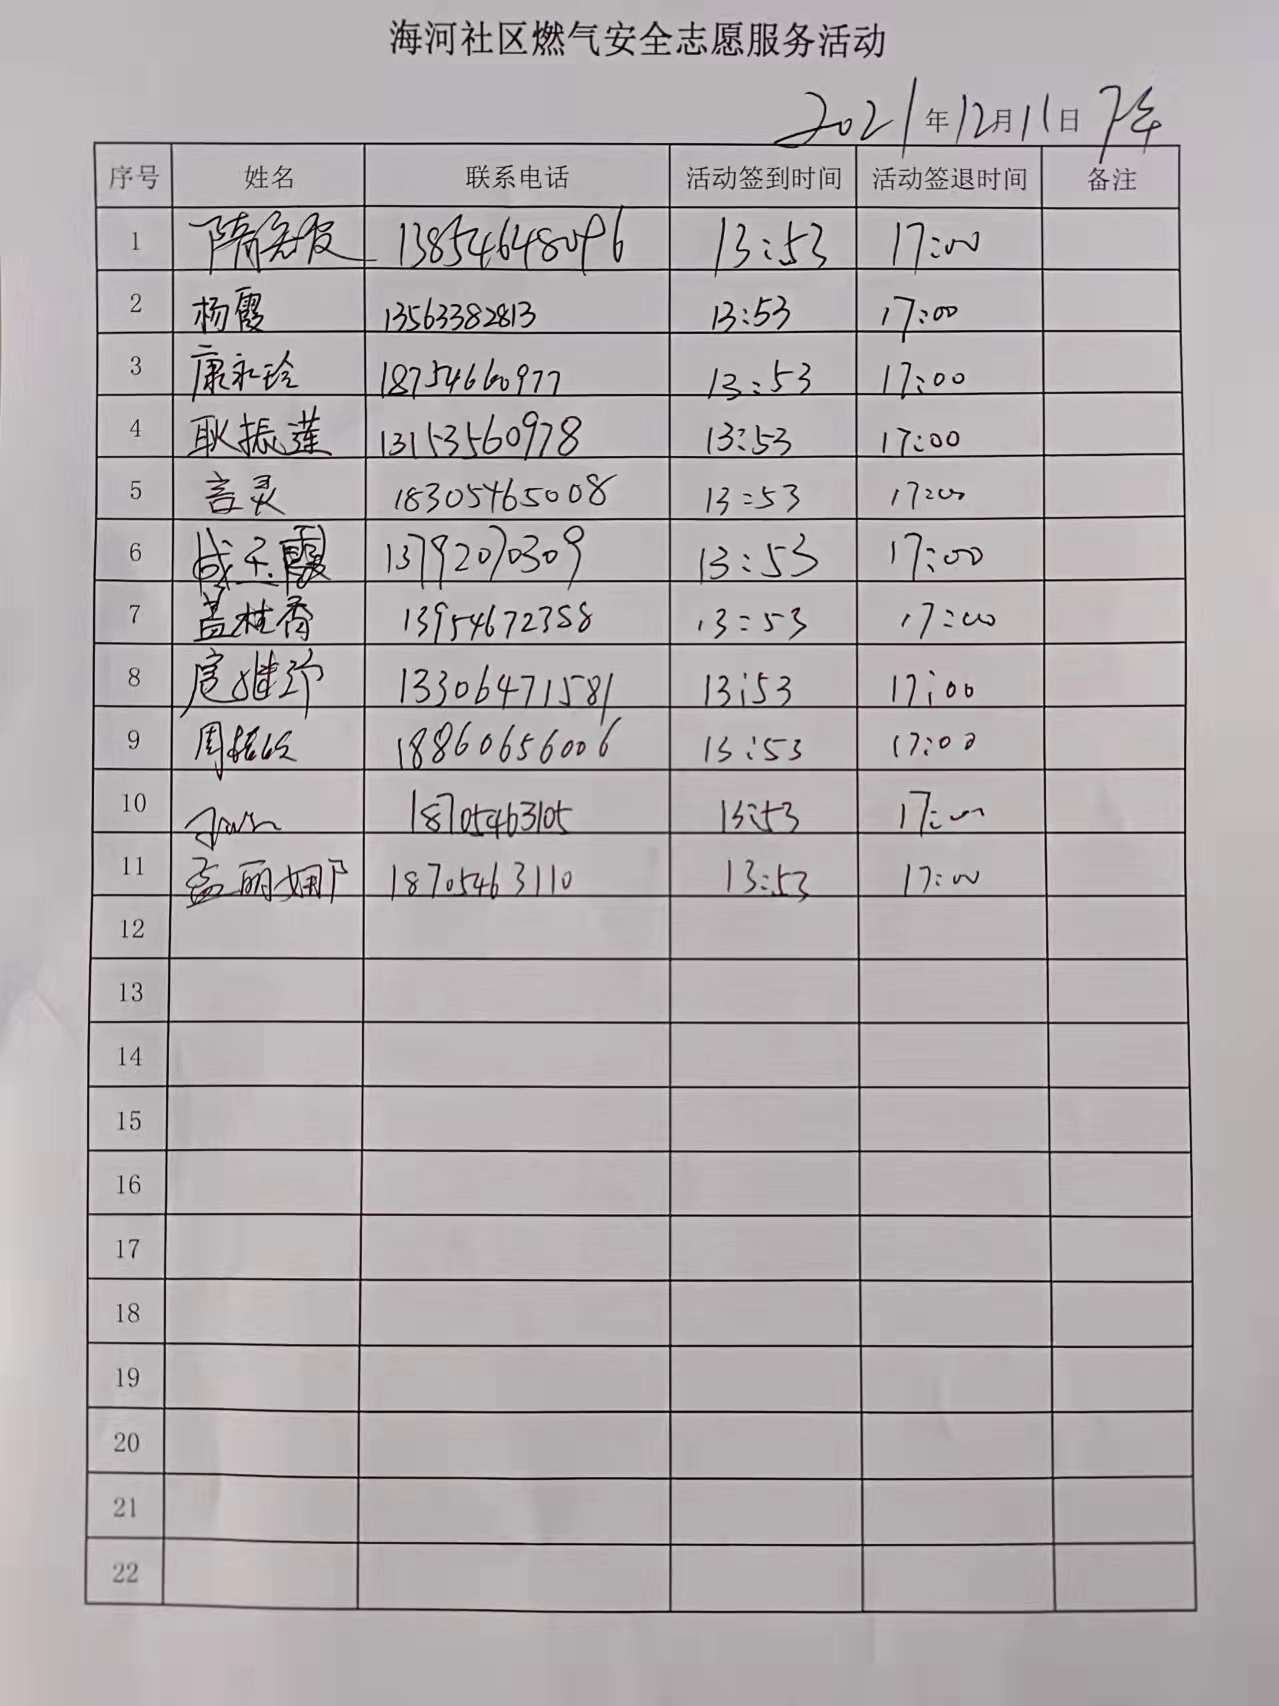 海河社区燃气安全志愿服务活动
2021年12月11日 下午
序号 姓名 联系电话 活动签到时间 活动签退时间 备注
1 13854648096 13:53 17:00
2 杨霞 13563382813 13:53 17:00
3 康永玲 18754660977 13:53 17:00
4 耿振莲 13153560978 13:53 17:00
5 言灵 18305465008 13:53 17:00
6 成玉霞 13792070309 13:53 17:00
7 盖桂香 13954672358 13:53 17:00
8 13306471581 13:53 17:00
9 周 18860656006 13:53 17:00
10 18705463105 13:53 17:00
11 孟丽娜 18705463110 13:53 17:00
12
13
14
15
16
17
18
19
20
21
22